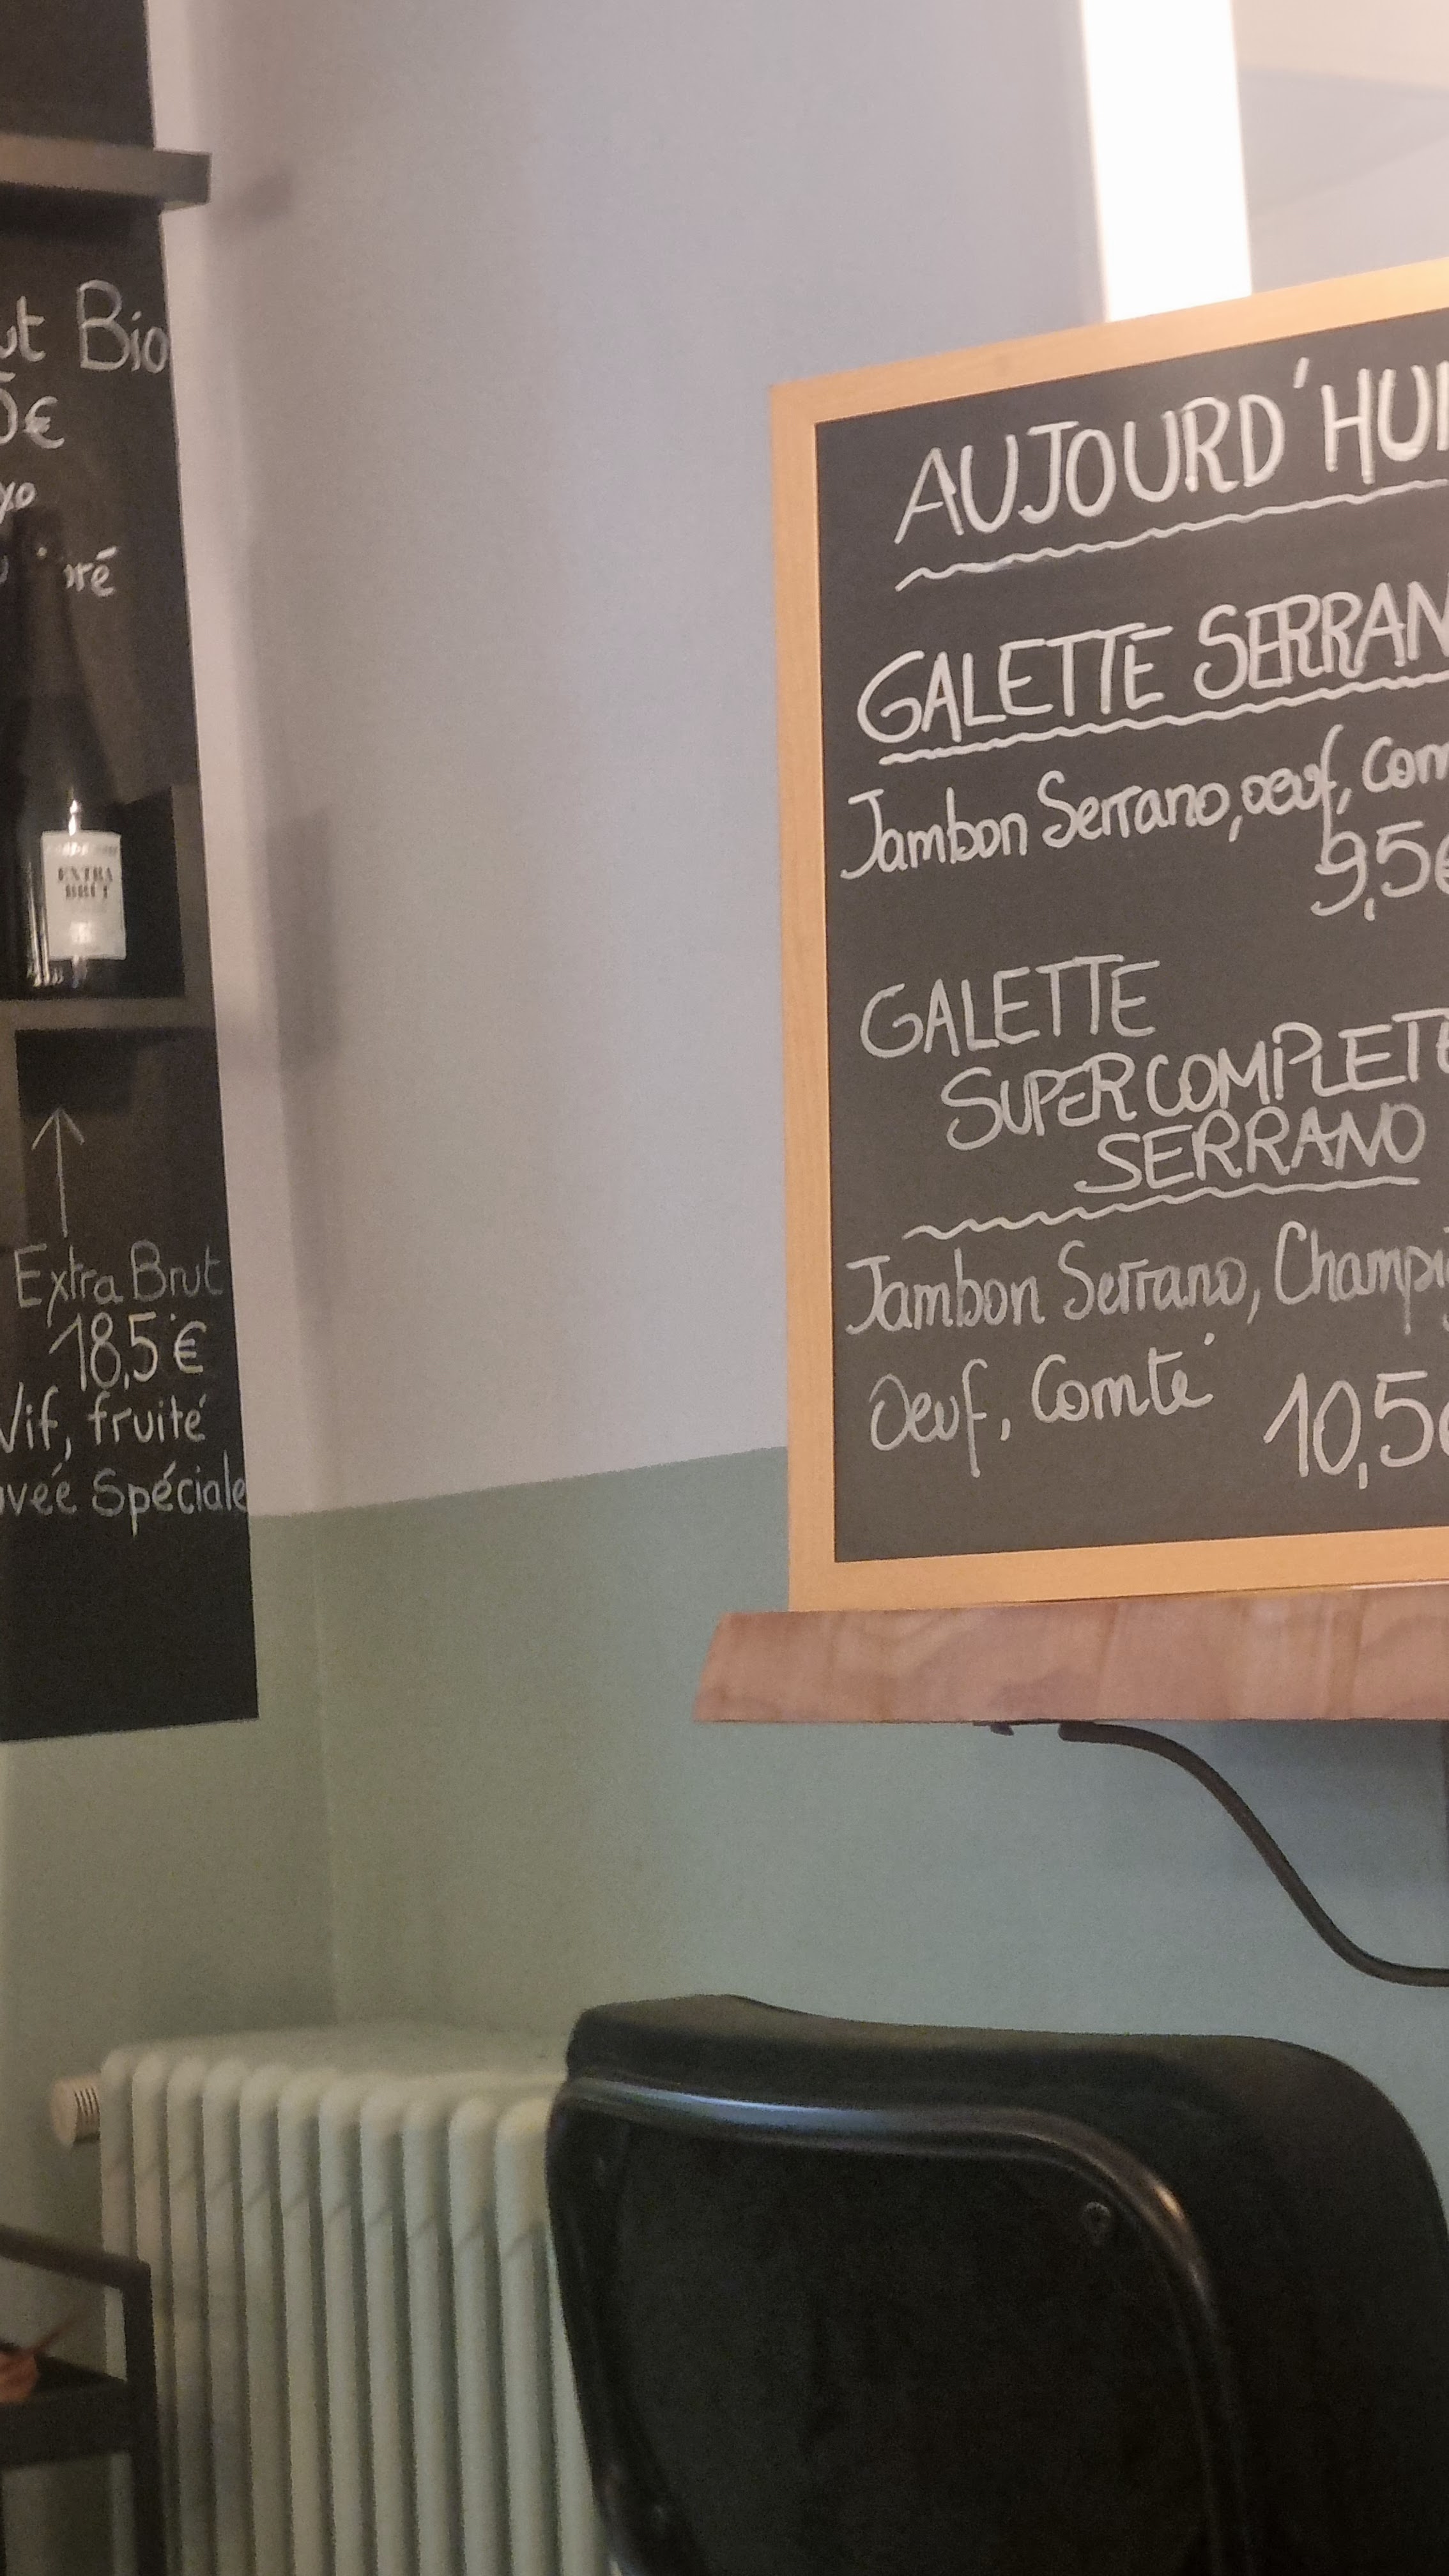 Bio
€
EXTRA
BRUT
Extra Brut
18,5€
Vif, fruité
Spéciale
AUJOURD'HUI
GALETTE SERRAN
Jambon Serrano, oeuf, Com
9,5€
GALETTE
SUPERCOMPLETE
SERRANO
Jambon Serrano, Champi
Oeuf, Comté
10,5€